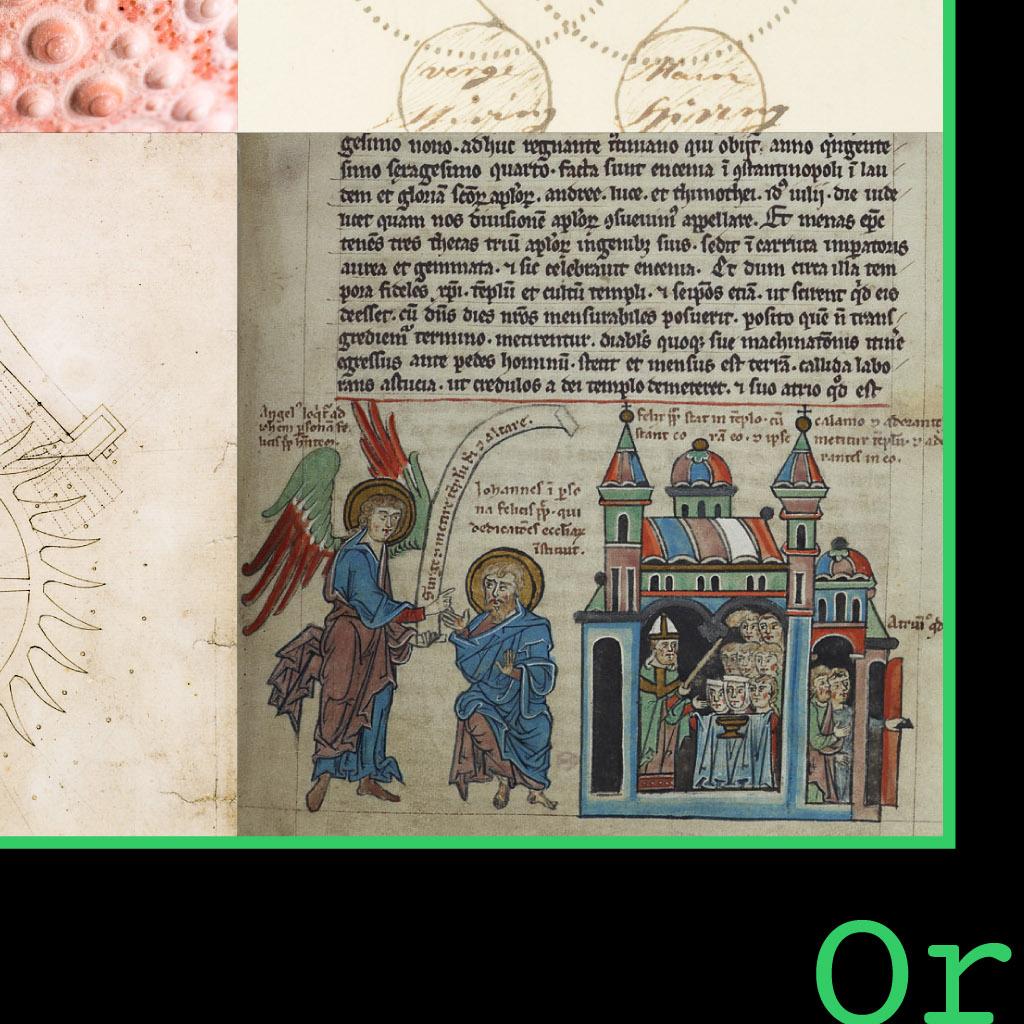 verge
Skiving
Main
Skiving
gesimo nono. adhuc regnante iustiniano qui obijt. anno q̃ngente
simo seragesimo quarto. facta sunt encenia ĩ ꝯstantinopoli ĩ lau
dem et gloriã scõꝝ aplõꝝ. andree. luce. et thimothei. id9 iulij. die uide
licet quam nos diuisionẽ aplõꝝ ꝯsueuim9 appellare. Et menas ep̃c
tenẽs tres thecas triũ aplõꝝ ingenibꝫ suis. sedit ĩ carruca imꝑatoris
aurea et gemmata. ⁊ sic celebrauit encenia. Et dum circa illa tem
pora fideles xp̃i. tẽplũ et cultũ templi. ⁊ seip̃os etiã. ut scirent q̃d eis
deesset. cũ dñs dies nr̃os mensurabiles posuerit. posito quẽ ñ trans
gredient termino. metirentur. diabls quoqꝫ sue machinatõnis
egressus ante pedes hominũ. stetit et mensus est terrã. callida labo
rans astucia. ut credulos a dei templo demeteret. ⁊ suo atrio q̃d est
Angel9 loqt̃ ad
ioh̃em ꝑsonã fe
licis pp̃
Surge ⁊ metire tẽplũ di ⁊ altare.
Iohannes ĩ ꝑso
na felicis pp̃. qui
dedicatões eccliaꝝ
ĩstituit.
felix pp̃ stat in tẽplo. cũ
calamo ⁊ adorante
metitur tẽplũ. ⁊ ado
rantes in eo.
Atriũ q̃d
Or